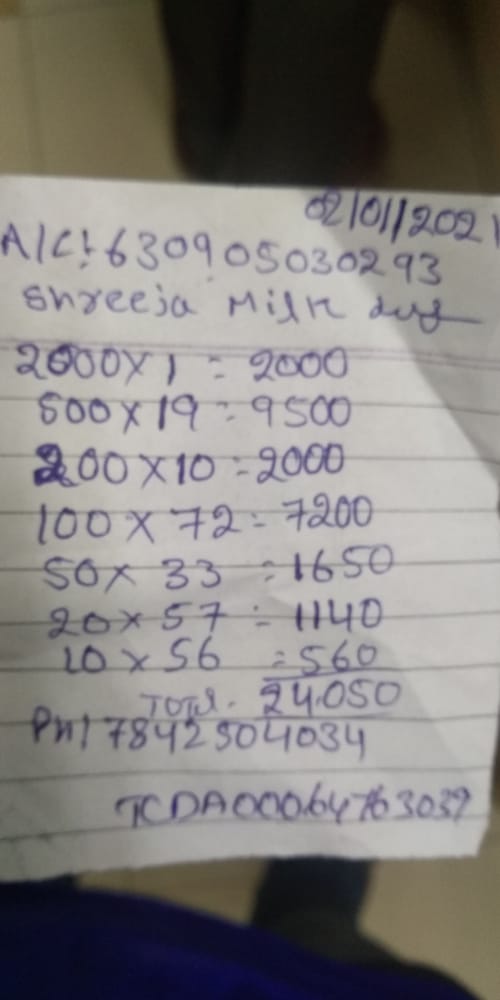 02/01/2021
A/C: 630905030293
Shreeja Milk
2000 x 1 = 2000
500 x 19 = 9500
200 x 10 = 2000
100 x 72 = 7200
50 x 33 = 1650
20 x 57 = 1140
10 x 56 = 560
Total. 24.050
PH: 7842504034
TCDA00064763039